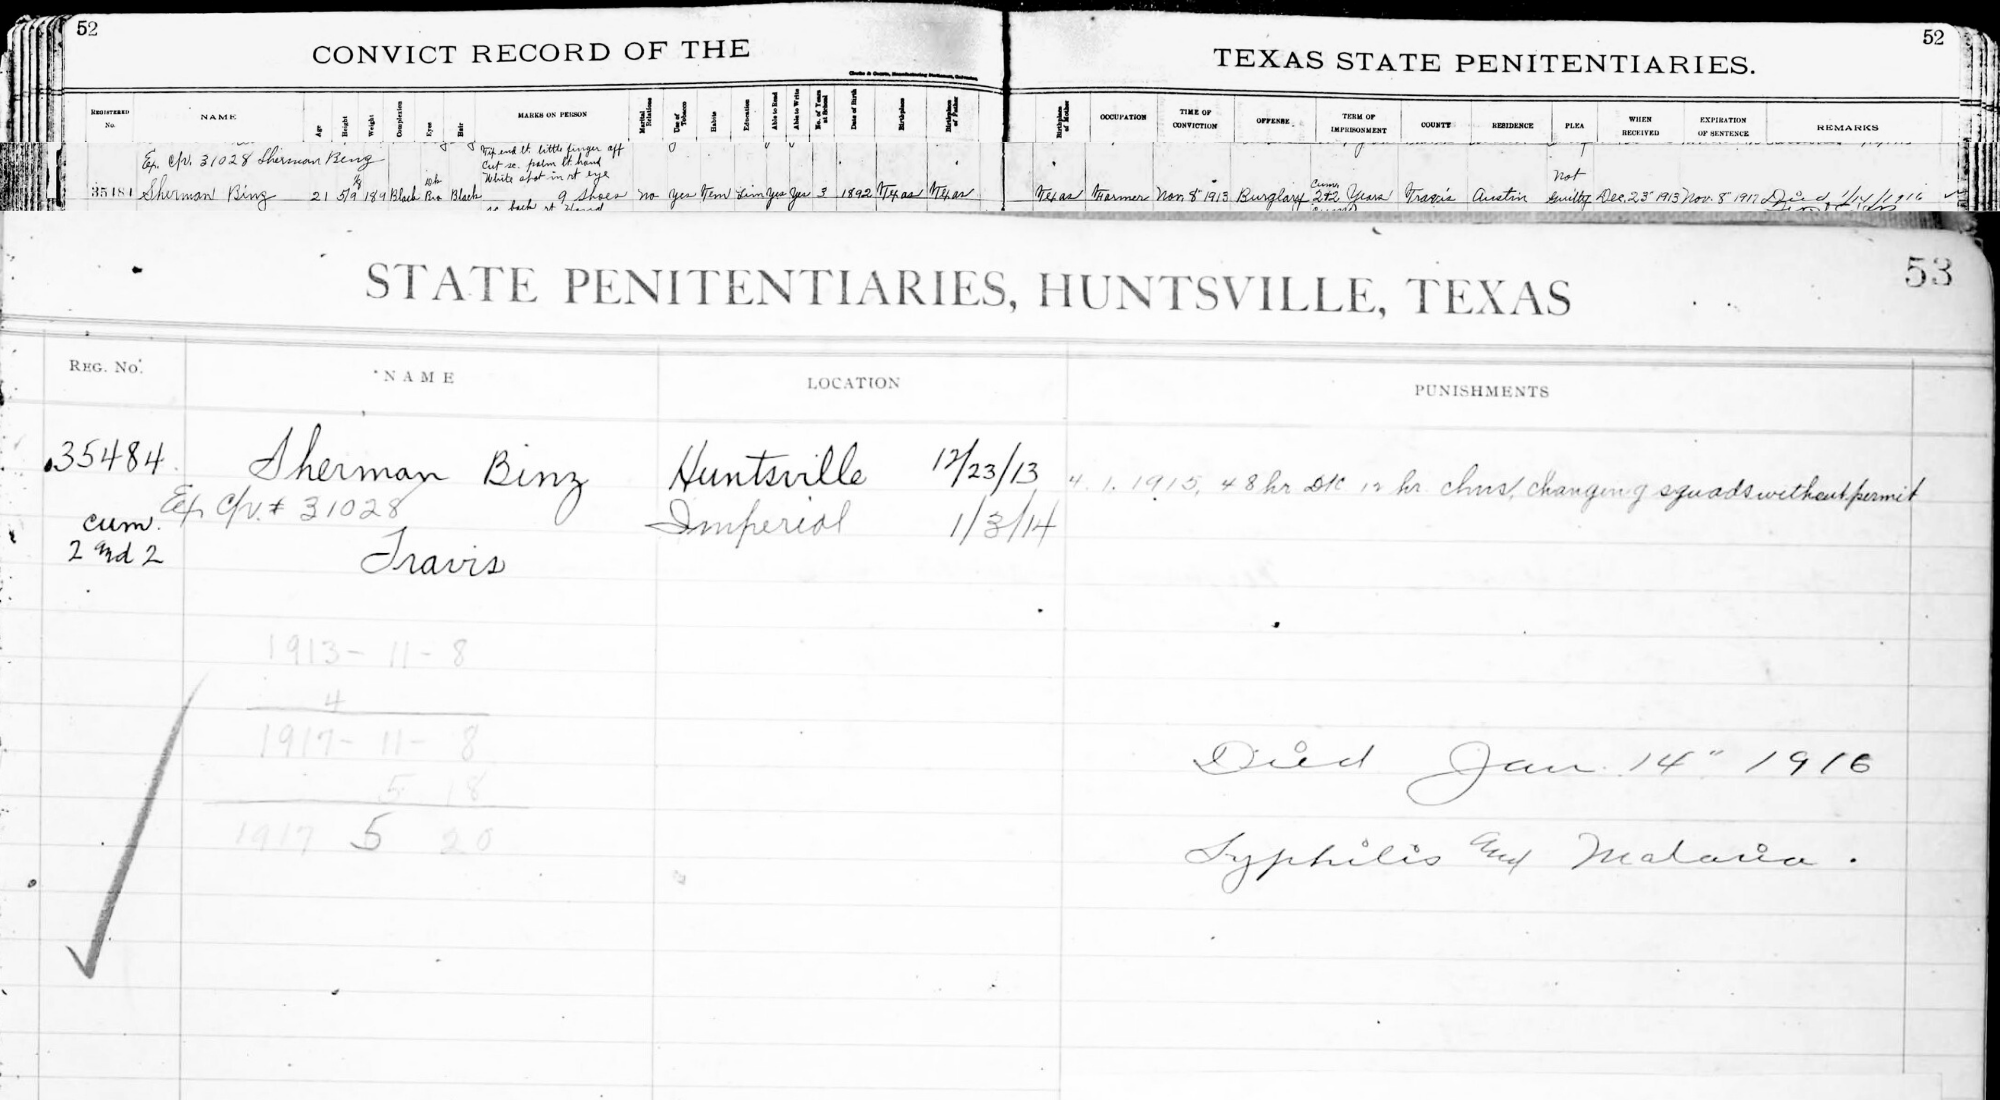 52
52
CONVICT RECORD OF THE
TEXAS STATE PENITENTIARIES.
REGISTERED No.
NAME
Age
Height
Weight
Complexion
Eyes
Hair
MARKS ON PERSON
Marital Relations
Use of Tobacco
Habits
Education
Able to Read
Able to Write
No. of Years at School
Date of Birth
Birthplace
Birthplace of Father
Birthplace of Mother
OCCUPATION
TIME OF CONVICTION
OFFENSE
TERM OF IMPRISONMENT
COUNTY
RESIDENCE
PLEA
WHEN RECEIVED
EXPIRATION OF SENTENCE
REMARKS
Ex. c/v. 31028 Sherman Binz
Tip end lt. little finger off
Cut sc. palm lt. hand
White spot in rt eye
35484 Sherman Binz 21 5/9 189 Black Dk Bro Black 9 Shoes no yes Tem Lim yes yes 3 1892 Texas Texas
Texas Farmer Nov. 8" 1913 Burglary Cum. 2+2 Years Travis Austin Not Guilty Dec. 23" 1913 Nov. 8" 1917 Died 1/14/1916
STATE PENITENTIARIES, HUNTSVILLE, TEXAS
53
REG. No.
NAME
LOCATION
PUNISHMENTS
35484 Sherman Binz Huntsville 12/23/13 4. 1. 1915, 48 hr DK 12 hr. chns, changing squads without permit
Ex c/v. # 31028 Imperial 1/3/14
cum.
2 and 2 Travis
1913 - 11 - 8
4
1917 - 11 - 8
5 18
1917 5 20
Died Jan. 14" 1916
Syphilis and Malaria.